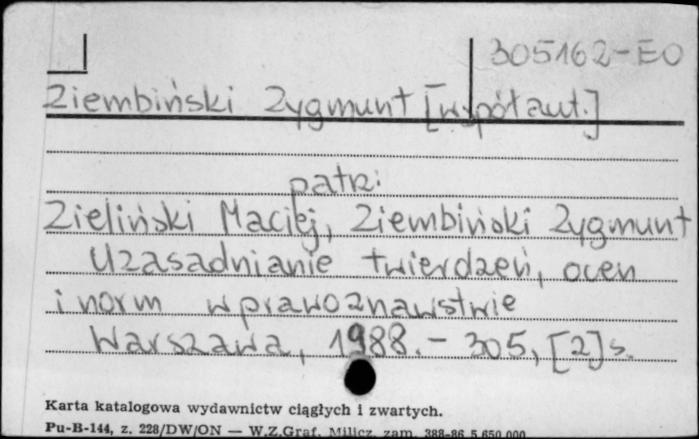 305162-EO
Ziembiński Zygmunt [współaut.]
patrz:
Zieliński Maciej, Ziembiński Zygmunt
Uzasadnianie twierdzeń, ocen
i norm w prawoznawstwie
Warszawa, 1988. - 305, [2] s.
Karta katalogowa wydawnictw ciągłych i zwartych.
Pu-B-144, z. 228/DW/ON — W.Z.Graf. Milicz, zam. 388-86 5.650.000